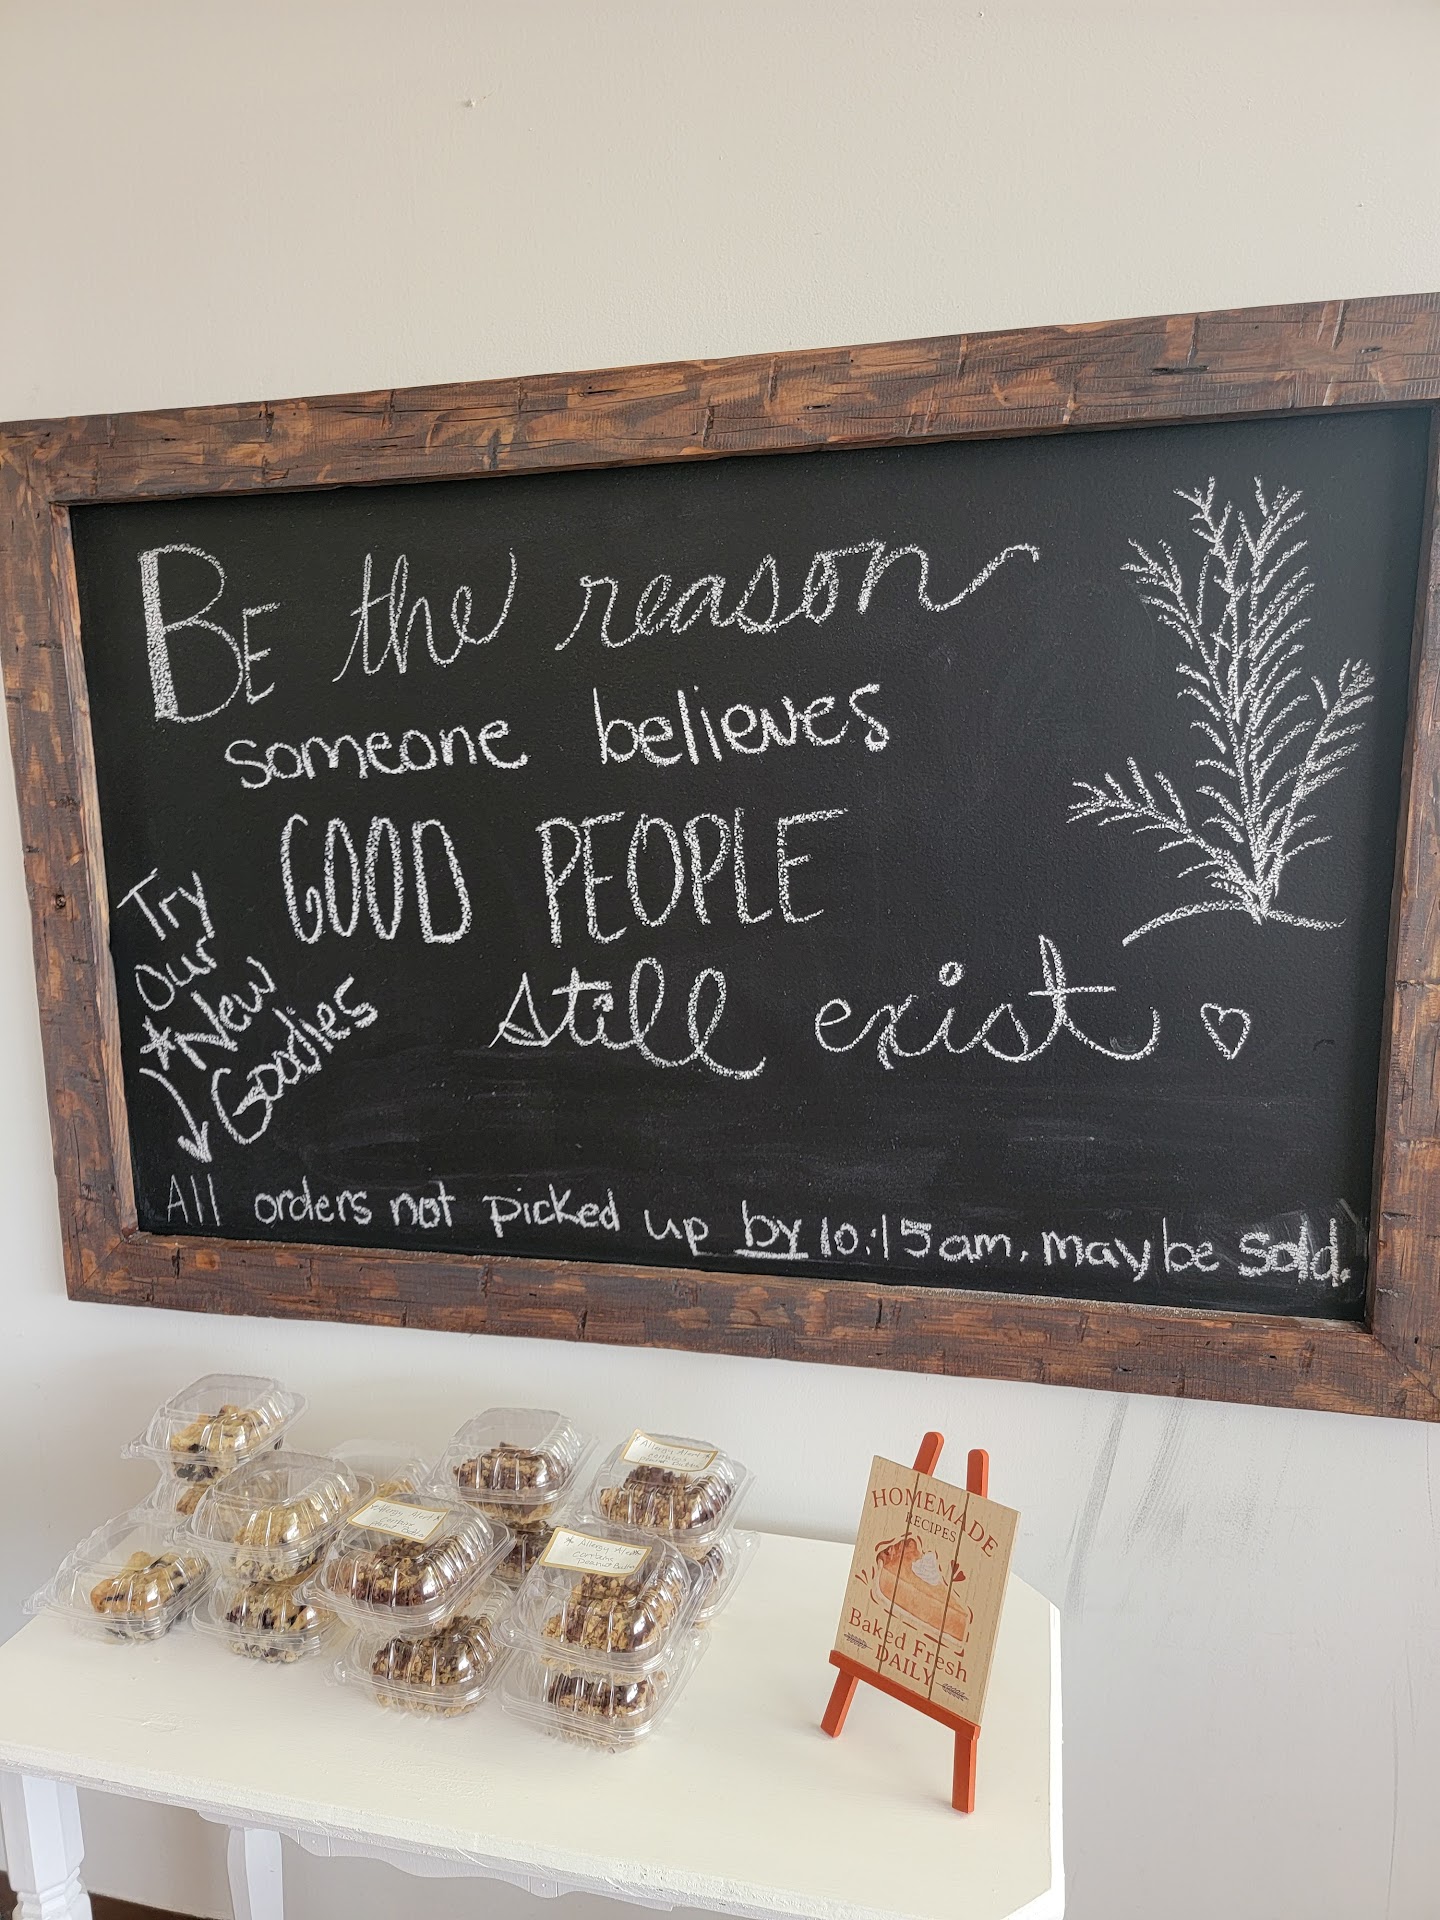 Be the reason
someone believes
GOOD PEOPLE
still exist
Try
our
*New
Goodies
All orders not picked up by 10:15am, may be sold.
*Allergy Alert*
contains
peanut Butter
*Allergy Alert*
contains
peanut Butter
*Allergy Alert*
contains
peanut Butter
HOMEMADE
RECIPES
Baked Fresh
DAILY